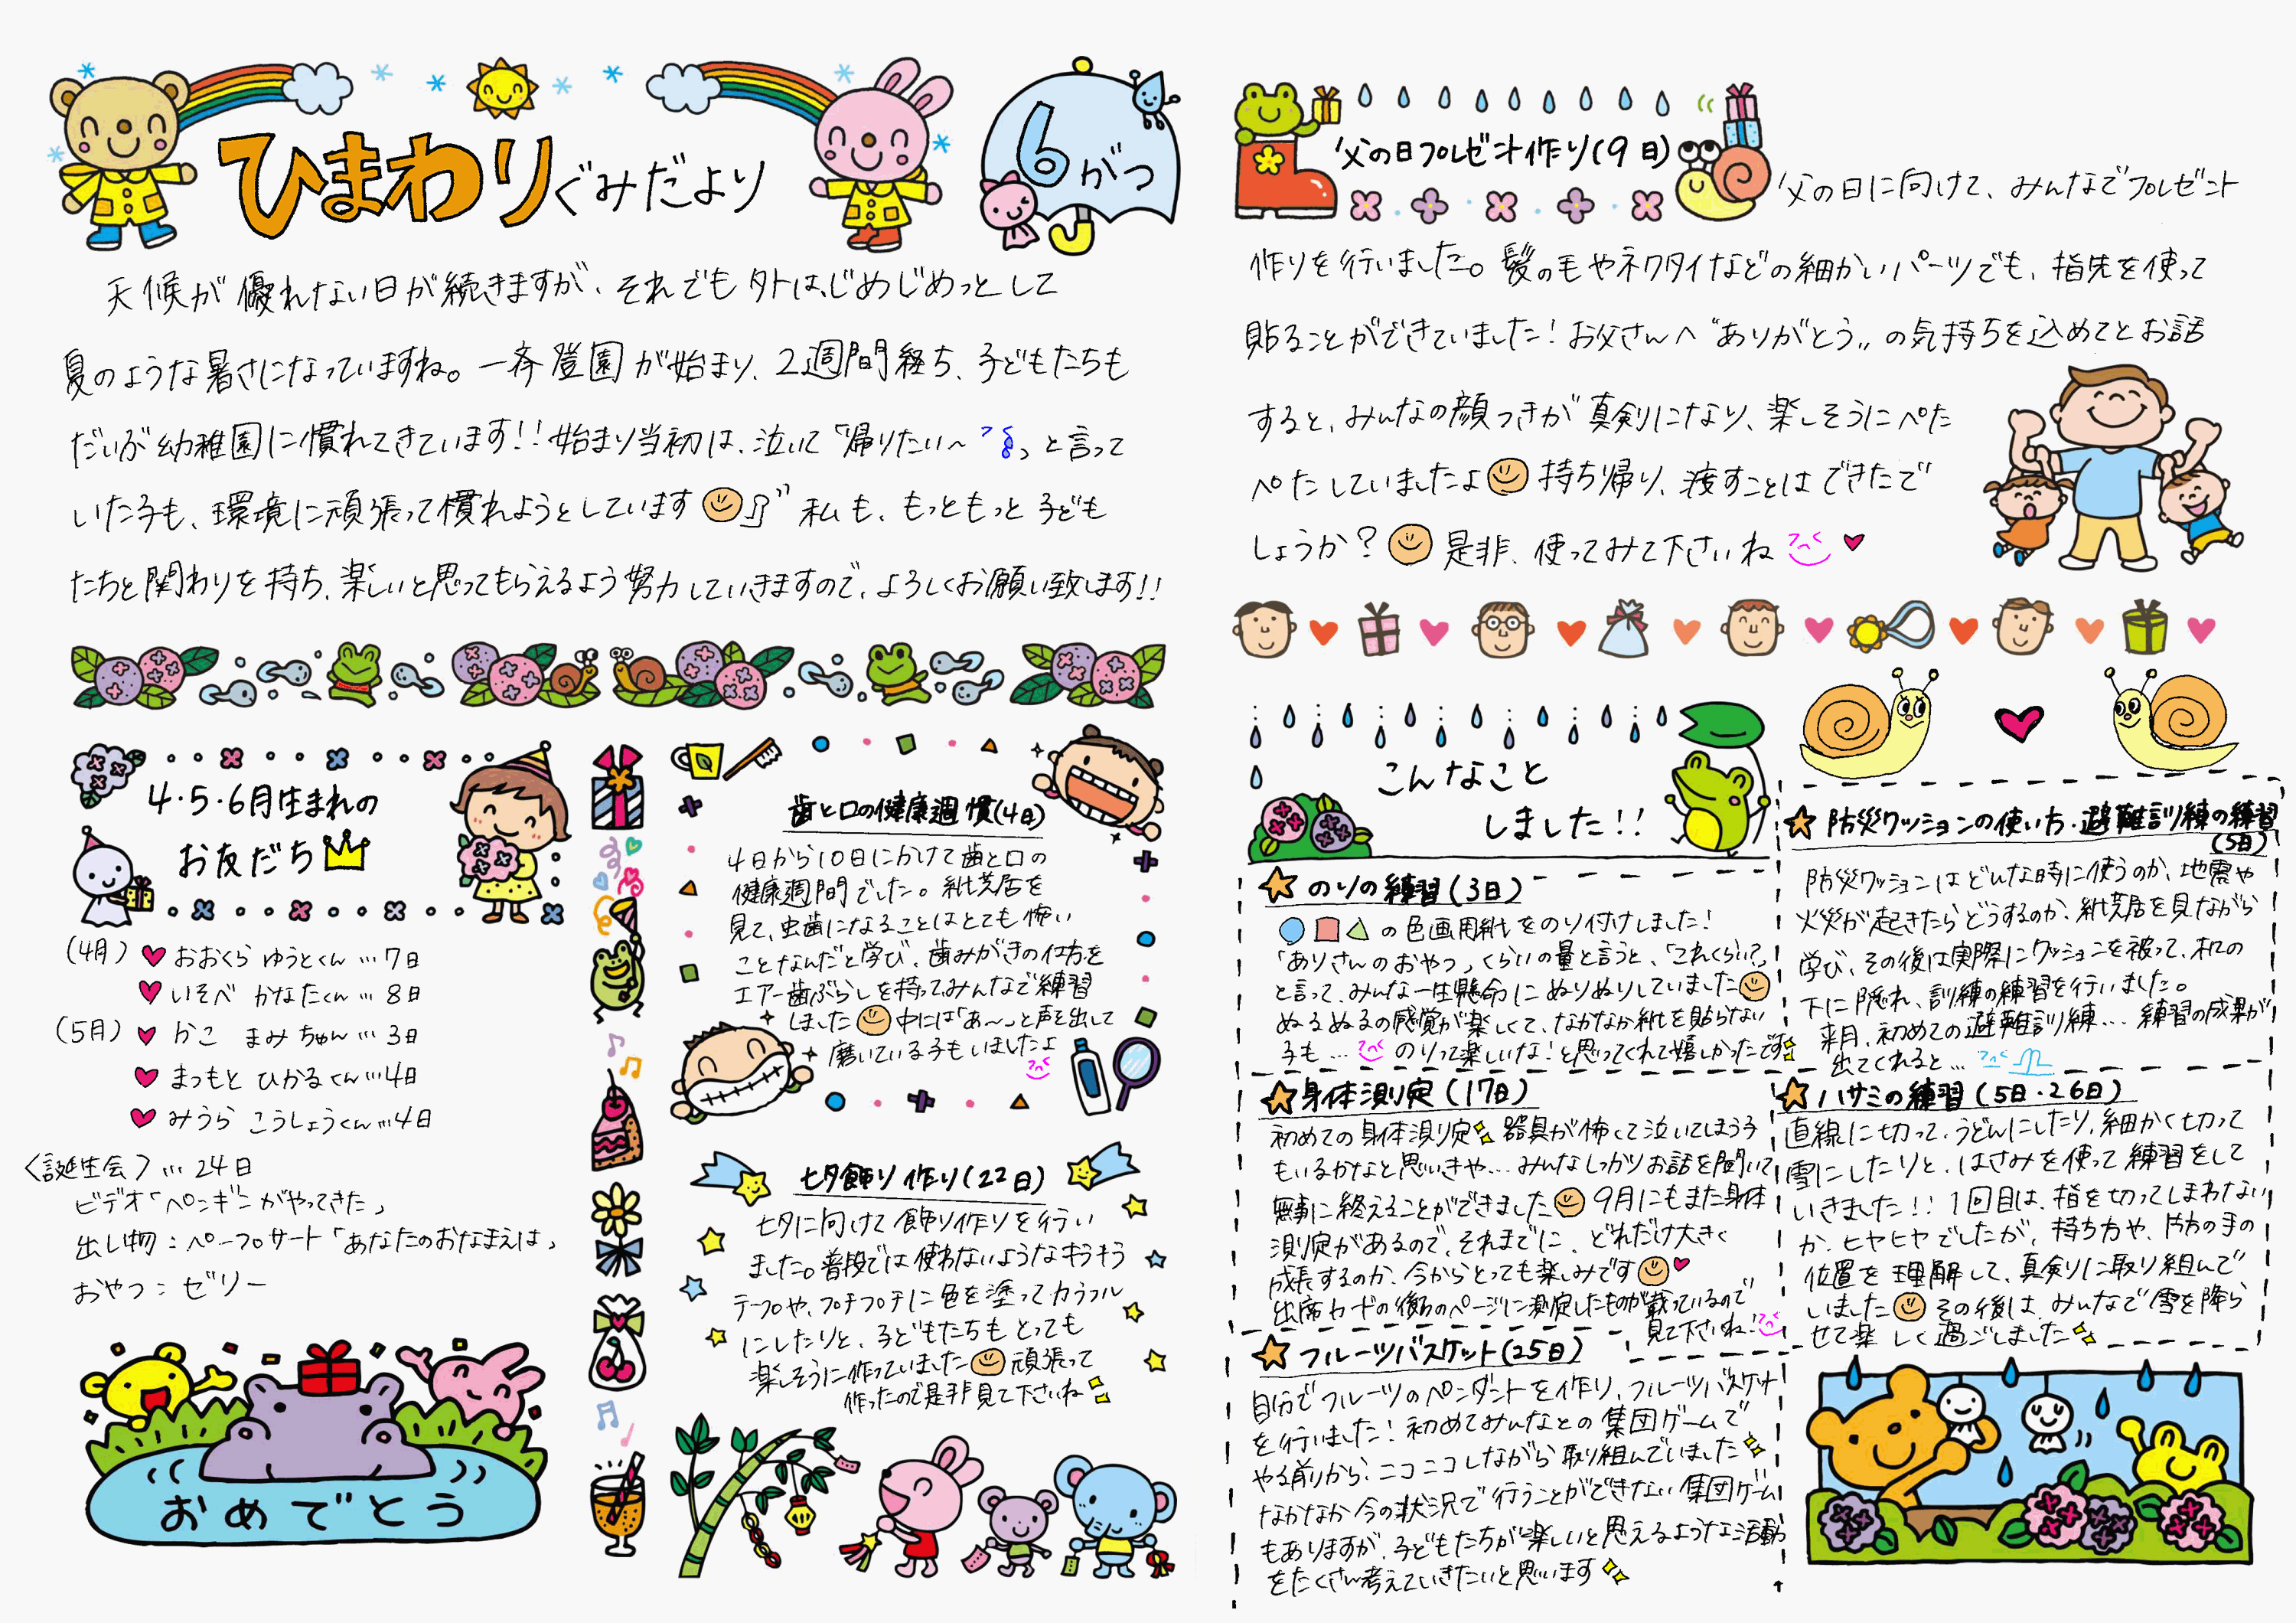 ひまわりぐみだより
6がつ
天候が優れない日が続きますが、それでも外は、じめじめっとして
夏のような暑さになっていますね。一斉登園が始まり、2週間経ち、子どもたちも
だいぶ幼稚園に慣れてきています!!始まり当初は、泣いて「帰りたい〜」と言って
いた子も、環境に頑張って慣れようとしています 私も、もっともっと子ども
たちと関わりを持ち、楽しいと思ってもらえるよう努力していきますので、よろしくお願い致します!!
4・5・6月生まれの
お友だち
(4月) ♥ おおくら ゆうとくん…7日
♥ いそべ かなたくん…8日
(5月) ♥ かこ まみちゃん…3日
♥ まつもと ひかるくん…4日
♥ みうら こうしょうくん…4日
〈誕生会〉…24日
ビデオ「ペンギンがやってきた」
出し物:ペープサート「あなたのおなまえは」
おやつ:ゼリー
おめでとう
歯と口の健康週慣(4日)
4日から10日にかけて歯と口の
健康週間でした。紙芝居を
見て、虫歯になることはとても怖い
ことなんだと学び、歯みがきの仕方を
エアー歯ぶらしを持ってみんなで練習
しました 中には「あ〜」と声を出して
磨いている子もいましたよ
七夕飾り作り(22日)
七夕に向けて飾り作りを行い
ました。普段では使わないようなキラキラ
テープや、プチプチに色を塗ってカラフル
にしたりと、子どもたちもとっても
楽しそうに作っていました 頑張って
作ったので是非見て下さいね
父の日プレゼント作り(9日)
父の日に向けて、みんなでプレゼント
作りを行いました。髪の毛やネクタイなどの細かいパーツでも、指先を使って
貼ることができていました!お父さんへ“ありがとう”の気持ちを込めてとお話
すると、みんなの顔つきが真剣になり、楽しそうにぺた
ぺたしていましたよ 持ち帰り、渡すことはできたで
しょうか? 是非、使ってみて下さいね ♥
こんなこと
しました!!
☆のりの練習(3日)
○□△の色画用紙をのり付けしました!
「ありさんのおやつ」くらいの量と言うと、「これくらい?」
と言って、みんな一生懸命にぬりぬりしていました
ぬるぬるの感覚が楽しくて、なかなか紙を貼らない
子も… のりって楽しいな!と思ってくれて嬉しかったです
☆防災クッションの使い方・避難訓練の練習
(5日)
防災クッションはどんな時に使うのか、地震や
火災が起きたらどうするのか、紙芝居を見ながら
学び、その後は実際にクッションを被って、机の
下に隠れ、訓練の練習を行いました。
来月、初めての避難訓練… 練習の成果が
出てくれると…
☆身体測定(17日)
初めての身体測定 器具が怖くて泣いてしまう子
もいるかなと思いきや…みんなしっかりお話を聞いて
無事に終えることができました 9月にもまた身体
測定があるので、それまでに、どれだけ大きく
成長するのか、今からとっても楽しみです ♥
出席カードの後ろのページに測定したものが載っているので
見て下さいね!
☆ハサミの練習(5日・26日)
直線に切って、うどんにしたり、細かく切って
雪にしたりと、はさみを使って練習をして
いきました!!1回目は、指を切ってしまわない
か、ヒヤヒヤでしたが、持ち方や、片方の手の
位置を理解して、真剣に取り組んで
いました その後は、みんなで雪を降ら
せて楽しく過ごしました
☆フルーツバスケット(25日)
自分でフルーツのペンダントを作り、フルーツバスケット
を行いました!初めてみんなとの集団ゲームで
やる前から、ニコニコしながら取り組んでいました
なかなか今の状況で行うことができない集団ゲーム
もありますが、子どもたちが楽しいと思えるような活動
をたくさん考えていきたいと思います